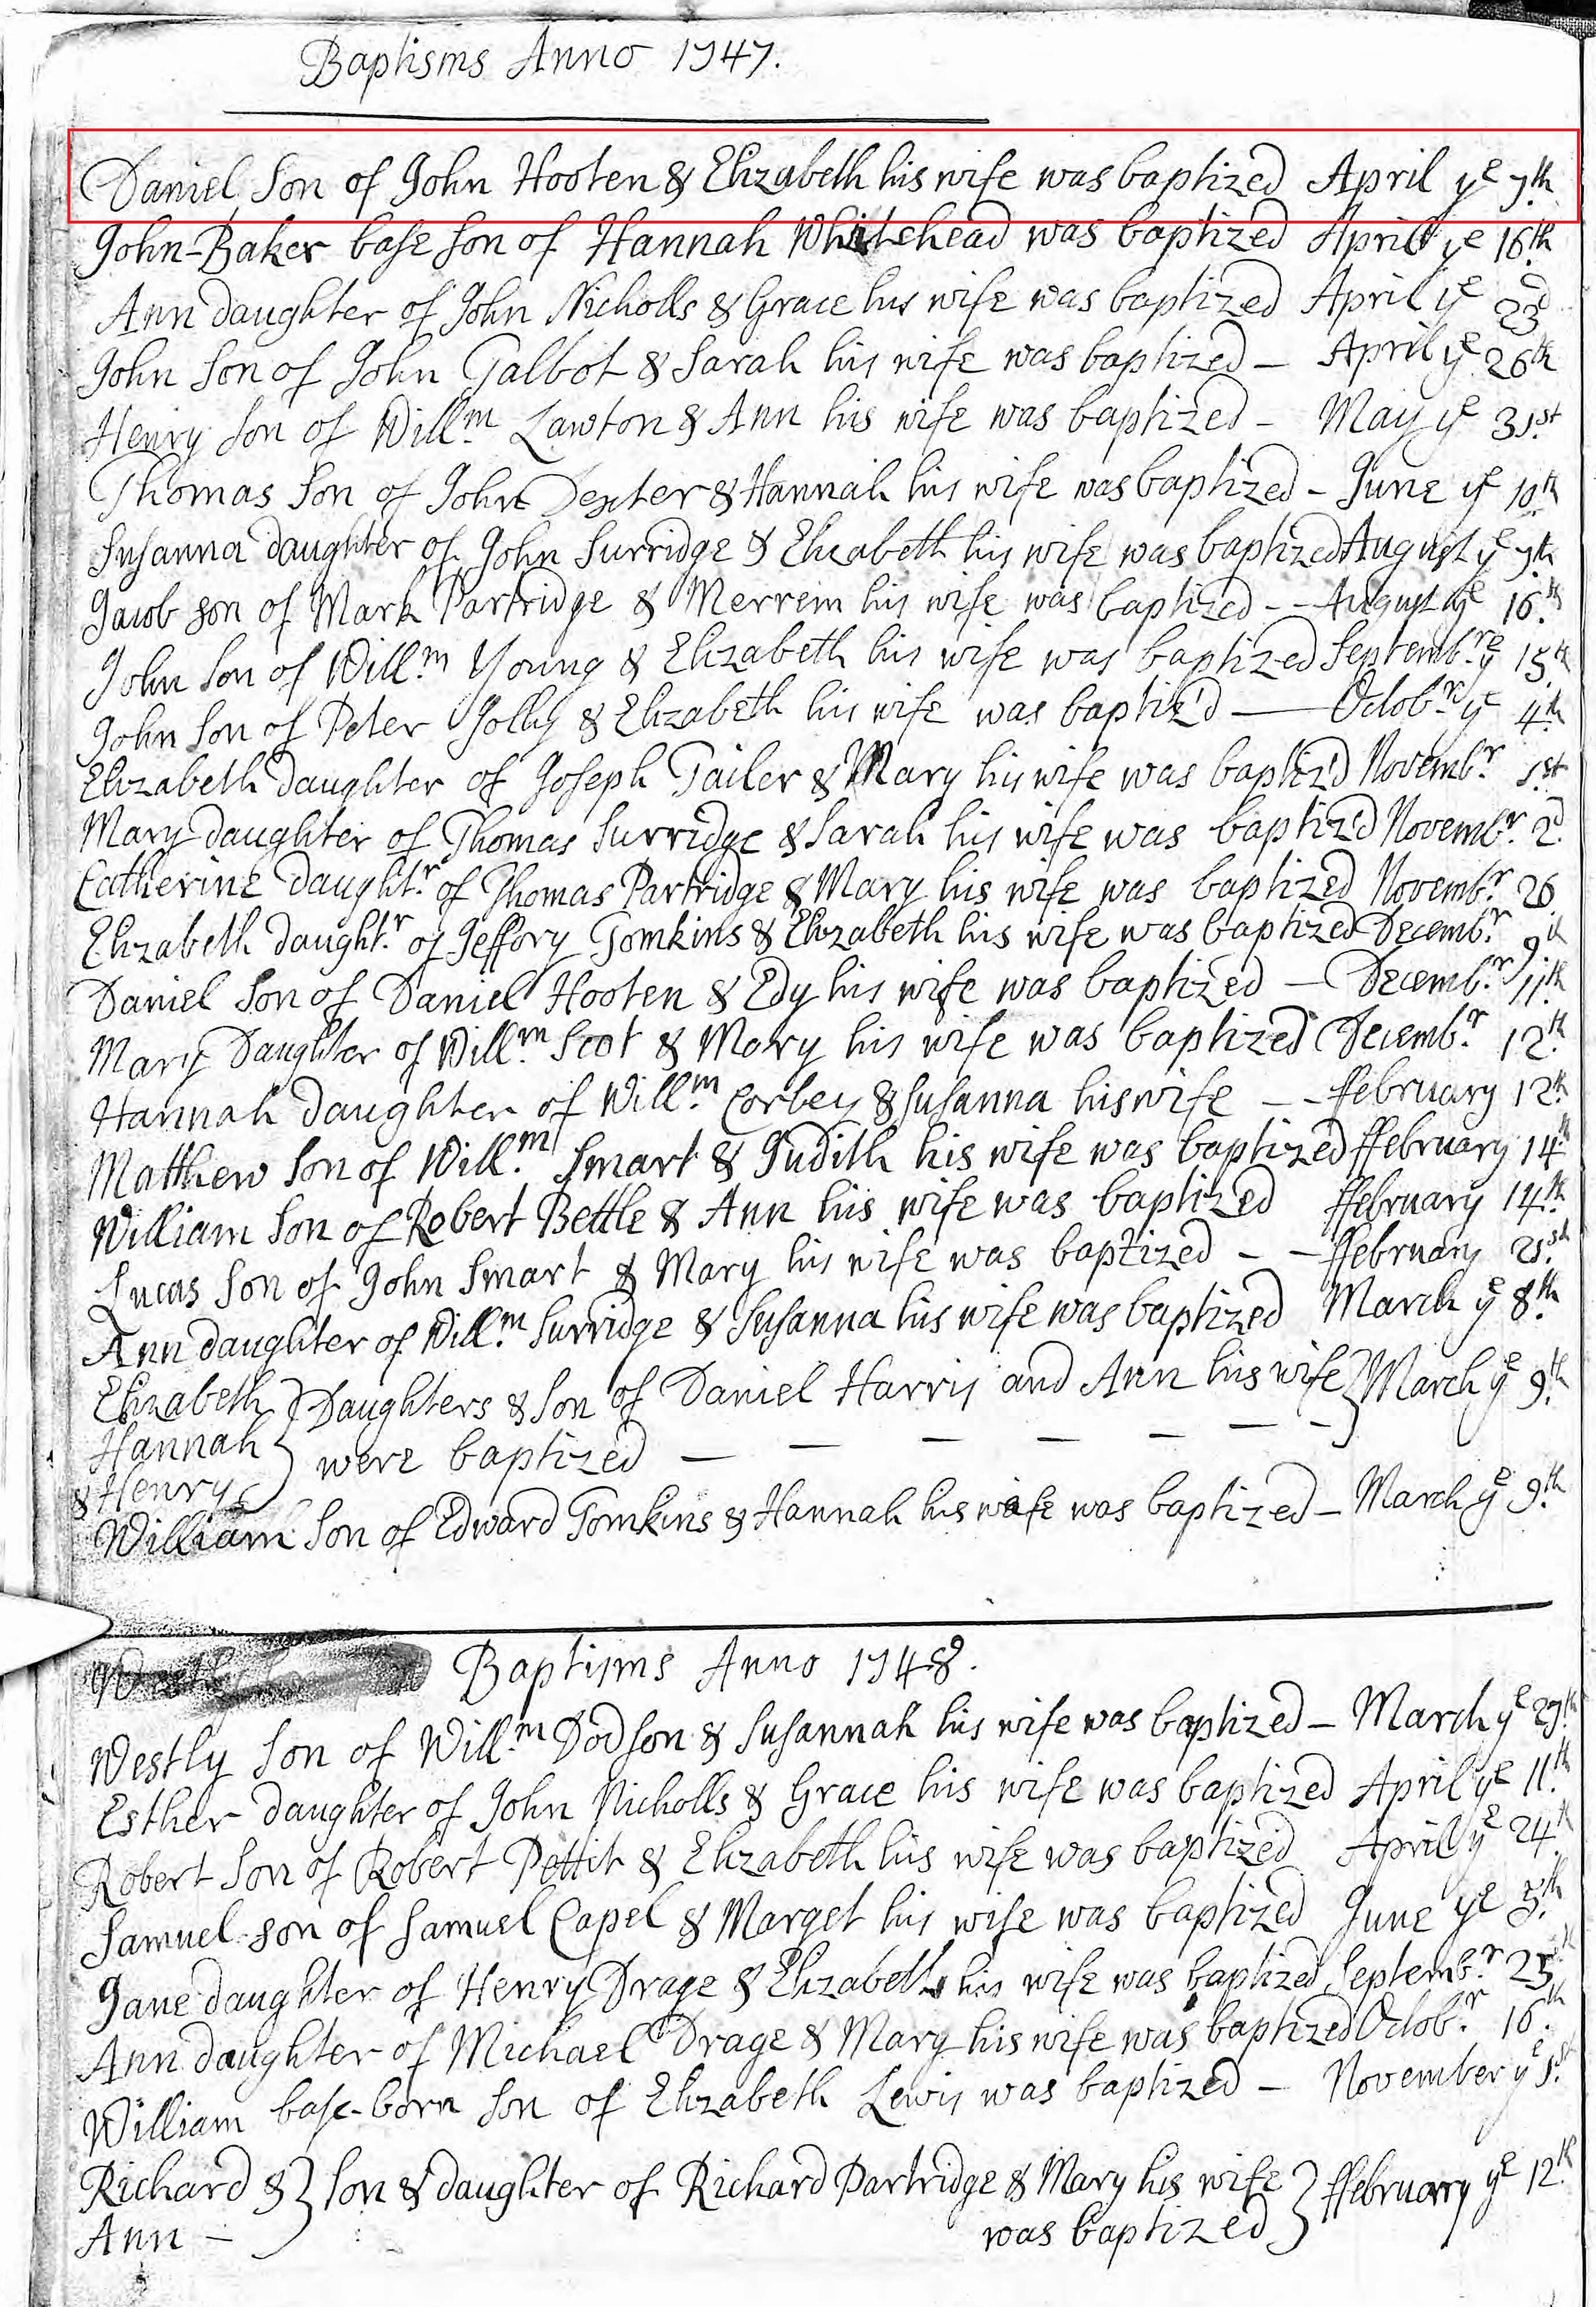 Baptisms Anno 1747.
Daniel Son of John Hooten & Elizabeth his wife was baptized April ye 7th
John-Baker base son of Hannah Whitehead was baptized April ye 16th
Ann daughter of John Nicholls & Grace his wife was baptized April ye 23d
John Son of John Talbot & Sarah his wife was baptized – April ye 26th
Henry Son of Willm Lawton & Ann his wife was baptized – May ye 31st
Thomas Son of John Dexter & Hannah his wife was baptized – June ye 10th
Susanna daughter of John Surridge & Elizabeth his wife was baptized August ye 7th
Jacob son of Mark Partridge & Merrem his wife was baptized - - August ye 16th
John Son of Willm Young & Elizabeth his wife was baptized Septembr ye 15th
John Son of Peter Jolly & Elizabeth his wife was baptiz'd — Octobr ye 4th
Elizabeth daughter of Joseph Tailer & Mary his wife was baptiz'd Novembr 1st
Mary daughter of Thomas Surridge & Sarah his wife was baptiz'd Novembr 2d
Catherine daughtr of Thomas Partridge & Mary his wife was baptized Novembr 26
Elizabeth daughtr of Jeffory Tomkins & Elizabeth his wife was baptized Decembr 9th
Daniel Son of Daniel Hooten & Edy his wife was baptized – Decembr 11th
Mary Daughter of Willm Scot & Mary his wife was baptized Decembr 12th
Hannah daughter of Willm Corbey & Susanna his wife – – ffebruary 12th
Matthew Son of Willm Smart & Judith his wife was baptized ffebruary 14th
William Son of Robert Bettle & Ann his wife was baptized ffebruary 14th
Lucas Son of John Smart & Mary his wife was baptized – – ffebruary 21st
Ann daughter of Willm Surridge & Susanna his wife was baptized March ye 8th
Elizabeth } Daughters & Son of Daniel Harris and Ann his wife } March ye 9th
Hannah } were baptized — — — — — — –
& Henry
William Son of Edward Tomkins & Hannah his wife was baptized – March ye 9th
Baptisms Anno 1748.
Westly Son of Willm Dodson & Susannah his wife was baptized – March ye 27th
Esther daughter of John Nicholls & Grace his wife was baptized April ye 11th
Robert Son of Robert Pettit & Elizabeth his wife was baptized April ye 24th
Samuel son of Samuel Capel & Marget his wife was baptized June ye 5th
Jane daughter of Henry Drage & Elizabeth his wife was baptized Septembr 25th
Ann daughter of Michael Drage & Mary his wife was baptized Octobr 16th
William base-born Son of Elizabeth Lewis was baptized – November ye 1st
Richard & } Son & daughter of Richard Partridge & Mary his wife } ffebruary ye 12th
Ann – was baptized